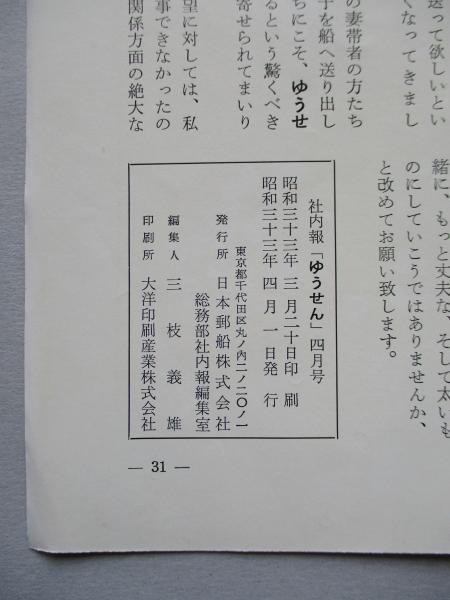 送って欲しいとい
くなってきまし
の妻帯者の方たち
子を船へ送り出し
ちにこそ、ゆうせ
るという驚くべき
寄せられてまいり
望に対しては、私
事できなかったの
関係方面の絶大な
緒に、もっと丈夫な、そして太いも
のにしていこうではありませんか、
と改めてお願い致します。
社内報「ゆうせん」四月号
昭和三十三年 三月二十日印刷
昭和三十三年 四月 一日発行
東京都千代田区丸ノ内二ノ二〇ノ一
発行所 日本郵船株式会社
総務部社内報編集室
編集人 三枝義雄
印刷所 大洋印刷産業株式会社
— 31 —